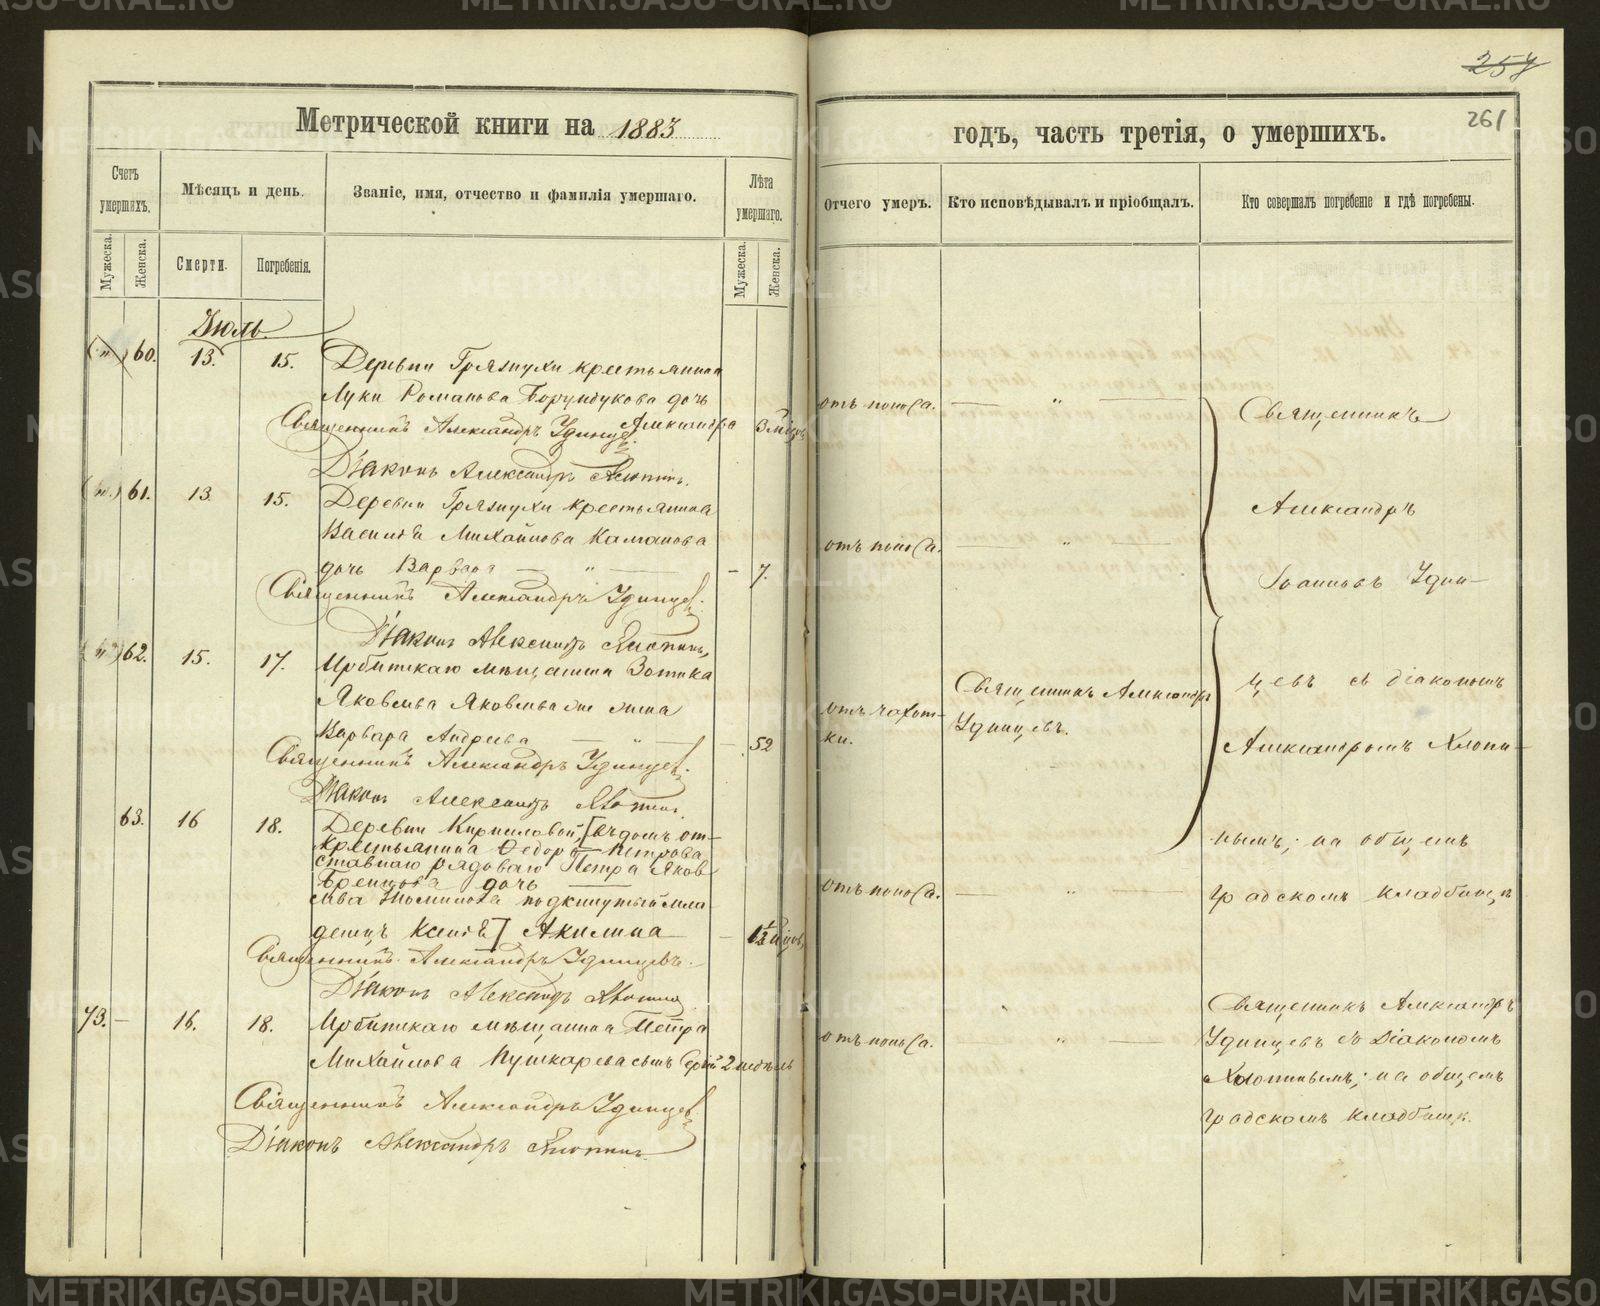 257
261
Метрической книги на 1883
годъ, часть третія, о умершихъ.
Счетъ умершихъ.
Мѣсяцъ и день.
Званіе, имя, отчество и фамилія умершаго.
Лѣта умершаго.
Отчего умеръ.
Кто исповѣдывалъ и пріобщалъ.
Кто совершалъ погребеніе и гдѣ погребены.
Мужеска.
Женска.
Смерти.
Погребенія.
Мужеска.
Женска.
Іюль
60. 13. 15. Деревни Грязнухи крестьянина
Луки Романова Борундукова дочь
Александра 3 мѣсяц.
отъ поноса. — " —
Священникъ Александръ Удинцев.
Діаконъ Александръ Хлопин.
61. 13 15. Деревни Грязнухи крестьянина
Василія Михайлова Каманова
дочь Варвара — " — - 7.
отъ поноса. — " —
Священникъ Александръ Удинцев.
Діаконъ Александръ Хлопинъ,
62. 15. 17. Ирбитскаго мѣщанина Зотика
Яковлева Яковлева жена
Варвара Андреева — " — 52
отъ чахот-
ки.
Священникъ Александръ
Удинцевъ.
Священникъ Александръ Удинцев.
Діаконъ Александръ Хлопин.
63. 16 18. Деревни Кирилловой, [въ домѣ от-
крестьянина Ѳедора Петрова
ставнаго рядоваго Петра Яков-
дочь
лева подкинутый мла-
денец Ксенія] Акилина - 1½
отъ поноса. — " —
Священникъ
Александръ
Іоанновъ Удин-
цевъ съ діакономъ
Александромъ Хлопи-
нымъ; на общемъ
градскомъ кладбищѣ
Священникъ Александръ Удинцевъ.
Діаконъ Александръ Хлопин
73. - 16. 18. Ирбитскаго мѣщанина Петра
Михайлова Пушкарева сынъ Сергій 2 недѣль
отъ поноса. — " —
Священникъ Александръ
Удинцевъ съ Діакономъ
Хлопинымъ; на общемъ
градскомъ кладбищѣ.
Священникъ Александръ Удинцев
Діаконъ Александръ Хлопин
METRIKI.GASO-URAL.RU